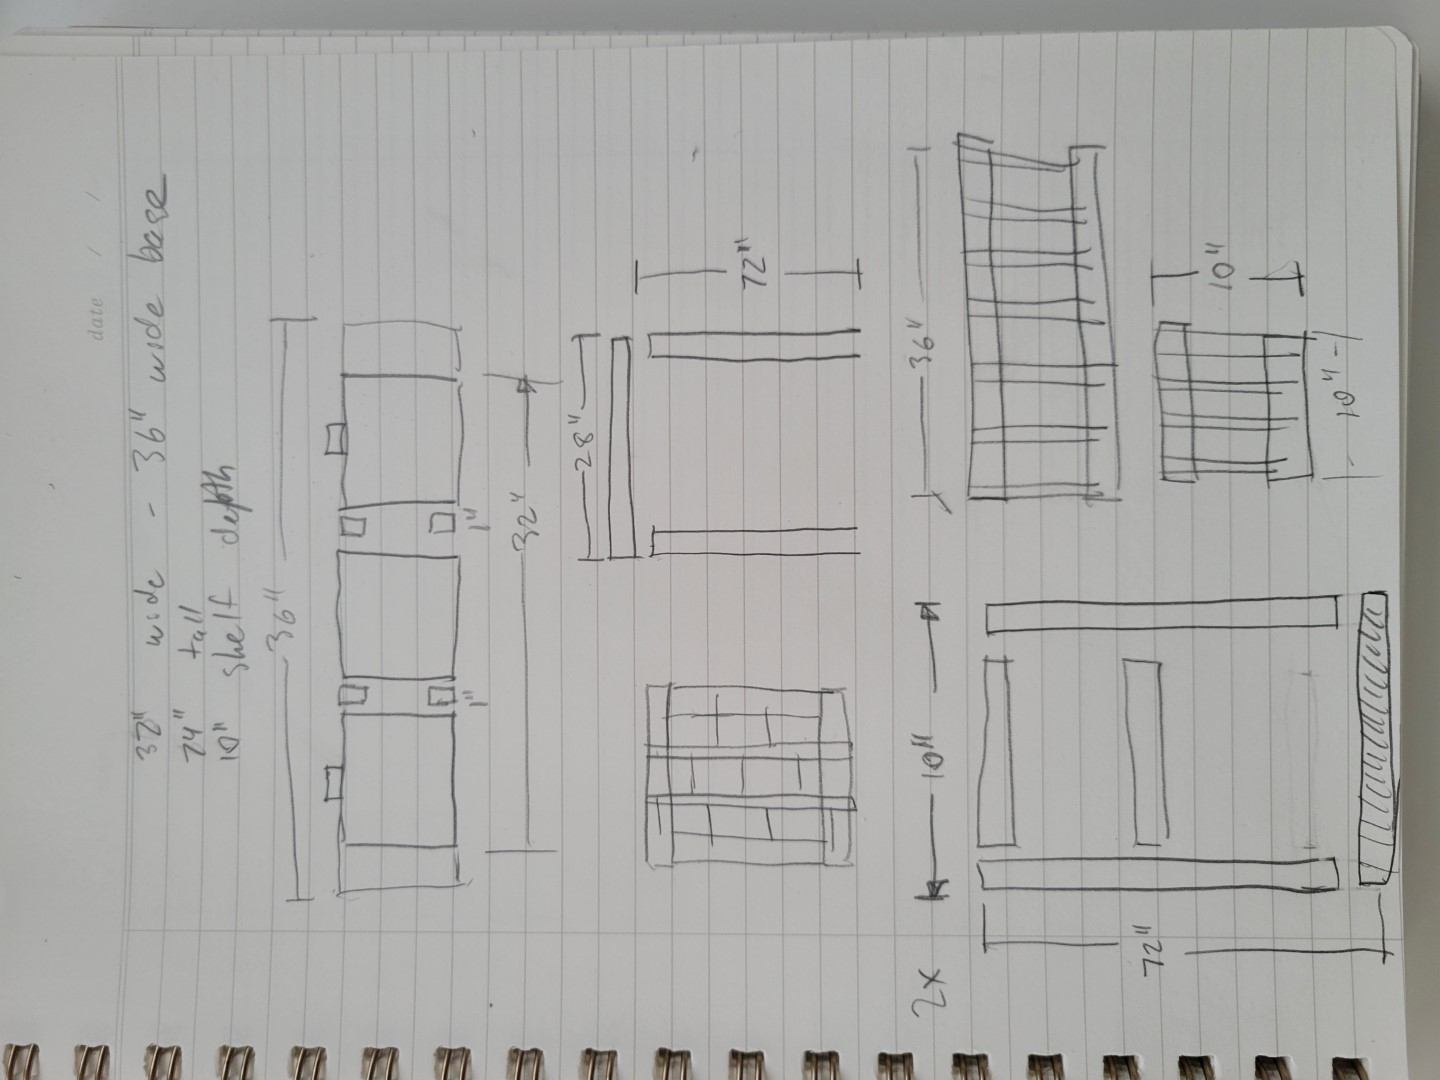 date / /
32" wide - 36" wide base
74" tall
10" shelf depth
36"
1" 1"
32"
28"
72"
2x 10"
36"
72"
10"
10"